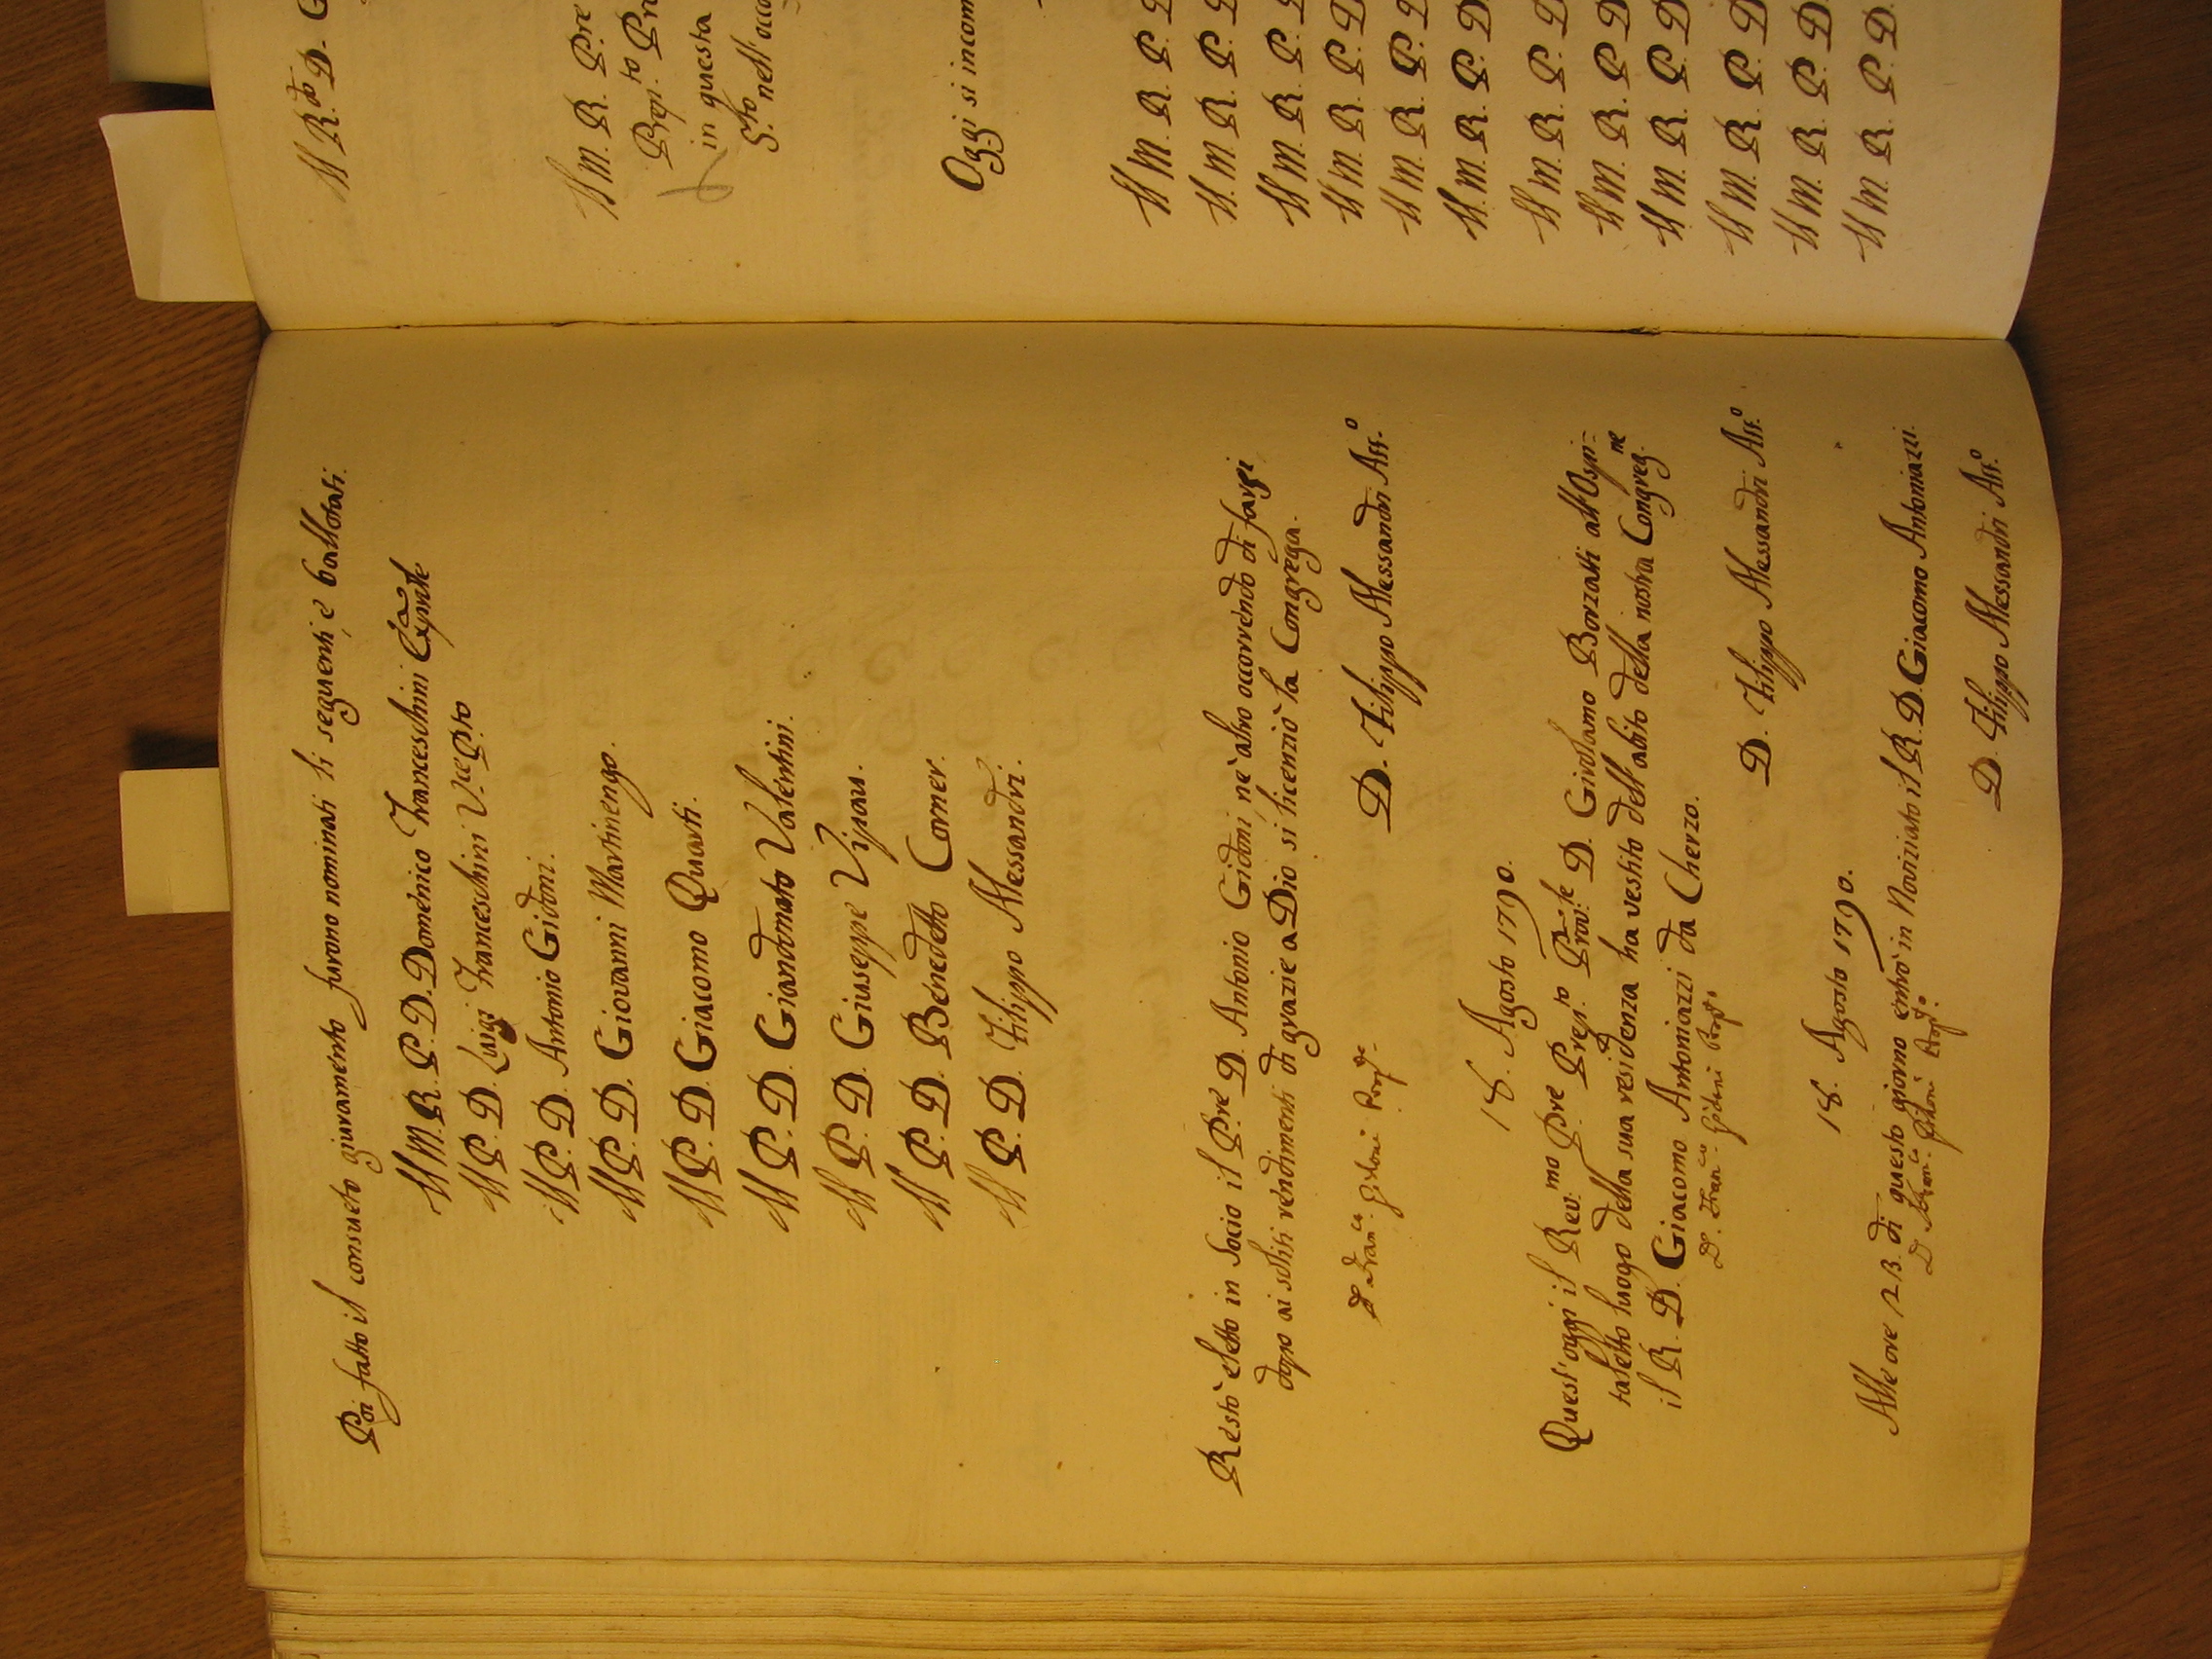 Poi fatto il consueto giuramento furono nominati li seguenti, e ballotati.
Il M. R. P. D. Domenico Franceschini Exp.le
Il P. D. Luigi Franceschini Vice P.to
Il P. D. Antonio Gidoni.
Il P. D. Giovanni Martinengo.
Il P. D. Giacomo Quarti.
Il P. D. Giandonato Valentini.
Il P. D. Giuseppe Vipau.
Il P. D. Benedetto Corner.
Il P. D. Filippo Alessandri.
Restò eletto in Socio il P.re D. Antonio Gidoni, nè altro occorrendo di farsi
dopo ai soliti rendimenti di grazie a Dio si licenziò la Congrega.
D. Filippo Alessandri Att.o
D. Fran.co Gidoni Prep.
18. Agosto 1790.
Quest'oggi il Rev.mo P.re Prep.to Prov.le D. Girolamo Borzatti all'Ospi=
taletto luogo della sua residenza ha vestito dell'abito della nostra Congreg.ne
il R. D. Giacomo Antoniazzi da Cherzo.
D. Fran.co Gidoni Prep.o
D. Filippo Alessandri Att.o
18. Agosto 1790.
Alle ore 23. di questo giorno entrò in Noviziato il R. D. Giacomo Antoniazzi.
D. Fran.co Gidoni Prep.o
D. Filippo Alessandri Att.o
Il R.do D. G
Il M. R. P.re
Prep.to Pr
in questa
S.to nell'occ
Oggi si incom
Il M. R. P. D
Il M. R. P. D
Il M. R. P. D
Il M. R. P. D
Il M. R. P. D
Il M. R. P. D
Il M. R. P. D
Il M. R. P. D
Il M. R. P. D
Il M. R. P. D
Il M. R. P. D.
Il M. R. P. D.